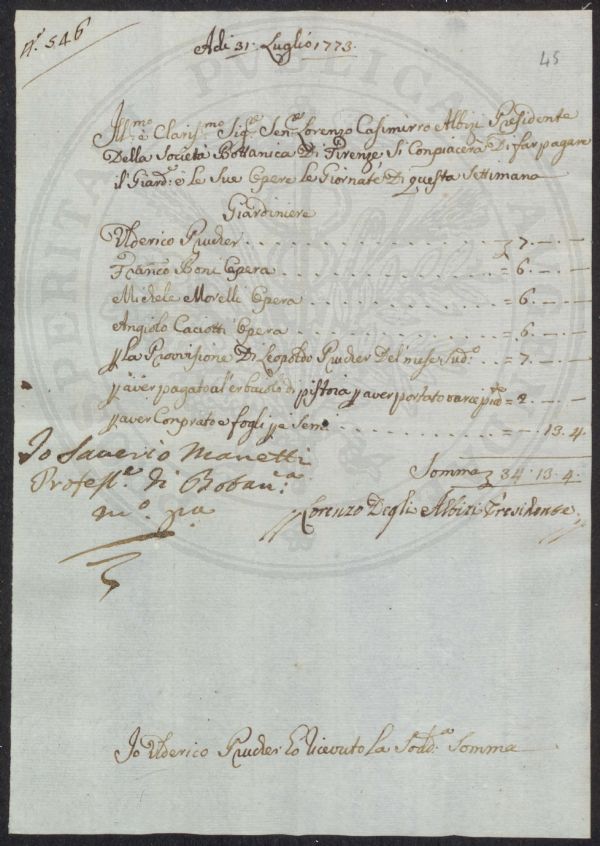 N.º 546
Adi 31. Luglio 1773.
45
Ill.mo e Claris.mo Sig.re Sen.re Lorenzo Casimirro Albizi Presidente
Della Società Bottanica Di Firenze, Si Conpiacerà Di far pagare
il Giard.e e le Sue Opere le Giornate Di questa Settimana
Giardiniere
Ulderico Prucker . . . . . . . . . . . . . . . . . . £ 7. — . —
Franc.co Boni Opera . . . . . . . . . . . . . . . . = 6. — . —
Michele Morelli Opera . . . . . . . . . . . . . . = 6. — . —
Angiolo Caciotti Opera . . . . . . . . . . . . . . = 6. — . —
p la Provvisione Di Leopoldo Prucker Del mese Sud.o . . = 7. — . —
p aver pagato al erbaiolo di pistoia p aver portato varie = 2. — . —
p aver Conprato e fogli p i Semi . . . . . . . . . . = — . 13. 4.
Somma £ 34. 13. 4.
Io Saverio Manetti
Profess.e di Botan.ca
m.o p.a
Lorenzo Degli Albizi Presidente
Io Ulderico Prucker ho ricevuto La Sodd.a Somma
PUBLICA